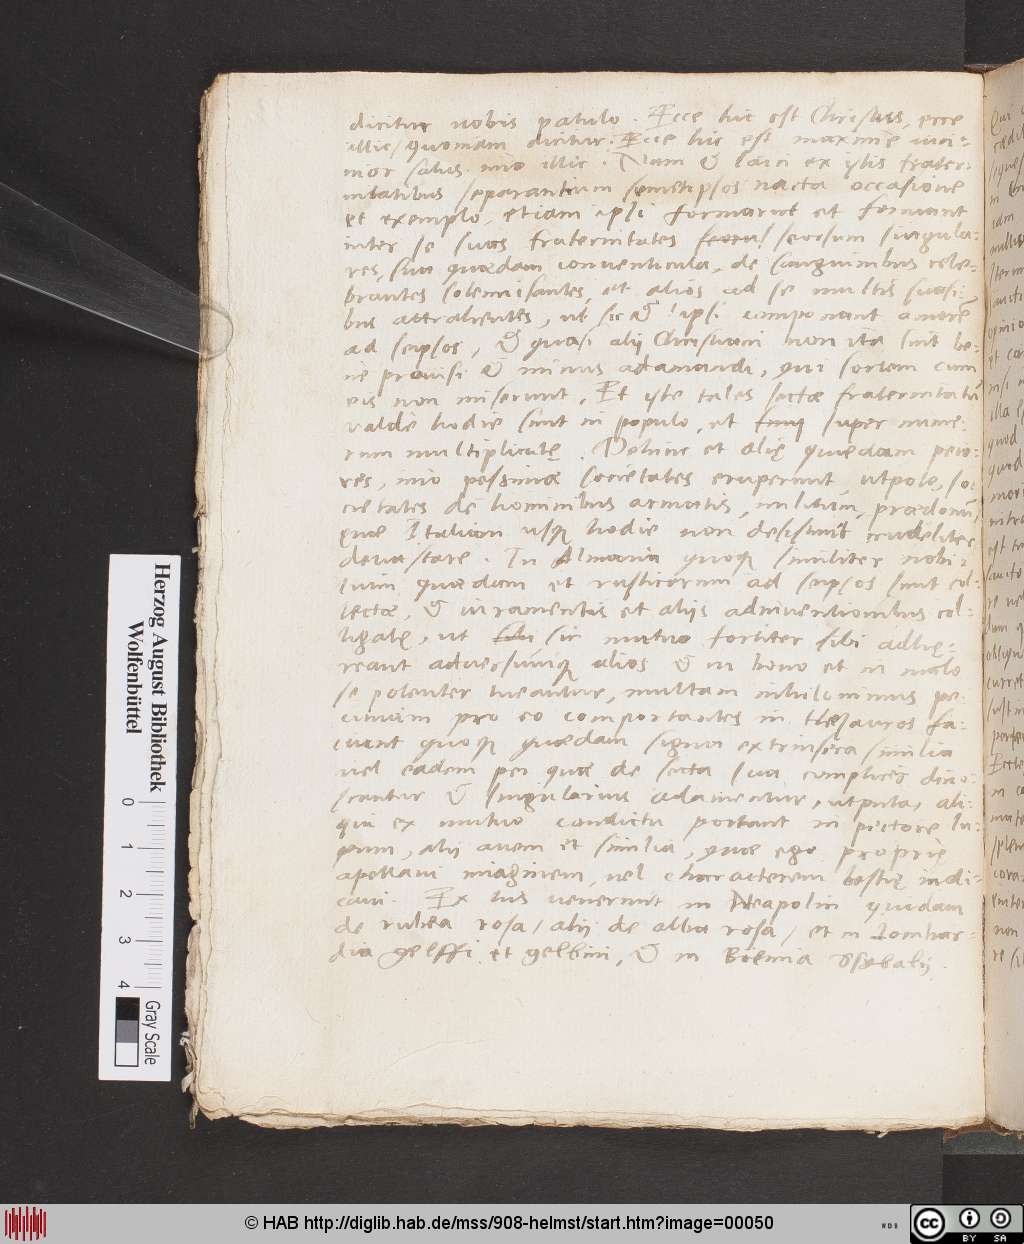 dicitur nobis patulo. Ecce hic est Christus, ecce
illic, quoniam dicitur. Ecce hic est maxime
salus imo illic. Nam & laici ex istis frater-
nitatibus separantium semetipsos nacta occasione
et exemplo, etiam ipsi formarunt et formant
inter se suas fraternitates seorsum singula-
res, sua quædam conventicula, de sanguinibus cele-
brantes solennisantes, et alios ad se multis suasi-
bus attrahentes, ut sic & ipsi componant amorē
ad seipsos, & quasi alij Christiani non ita sint be-
ne provisi & minus adamandi, qui sortem cum
eis non miserunt. Et iste tales sectæ fraternitatū
valde hodie sunt in populo, et super nume-
rum multiplicatę. Dehinc et alię quædam peio-
res, imo pessimæ societates eruperunt, utpote, so-
cietates de hominibus armatis, militum, prædonū,
quæ Italiam usqꝫ hodie non desistunt crudeliter
devastare. In Almania quoqꝫ similiter nobi-
lium quædam et rusticorum ad seipsos sunt col-
lectæ, & iuramentis et alijs adinventionibus col-
ligatę, ut sic mutuo fortiter sibi adhę-
reant adversumqꝫ alios & in bono et in malo
se potenter tueantur, multam nihilominus pe-
cuniam pro eo comportantes in thesauros fa-
ciunt quoqꝫ quædam signa extrinseca similia
vel eadem per quæ de secta sua complices dino-
scantur & singularius adamentur, utputa, ali-
qui ex mutuo condictu portant in pectore lu-
pum, alij avem et similia, quæ ego proprię
apellavi imaginem, vel characterem bestię indi-
cavi. Ex his venerunt in Neapolin quidam
de rubea rosa, alij de alba rosa, et in Lombar-
dia gelffi et gelbini, & in
Herzog August Bibliothek
Wolfenbüttel
0 1 2 3 4
Gray Scale
© HAB http://diglib.hab.de/mss/908-helmst/start.htm?image=00050
WDB
CC BY SA